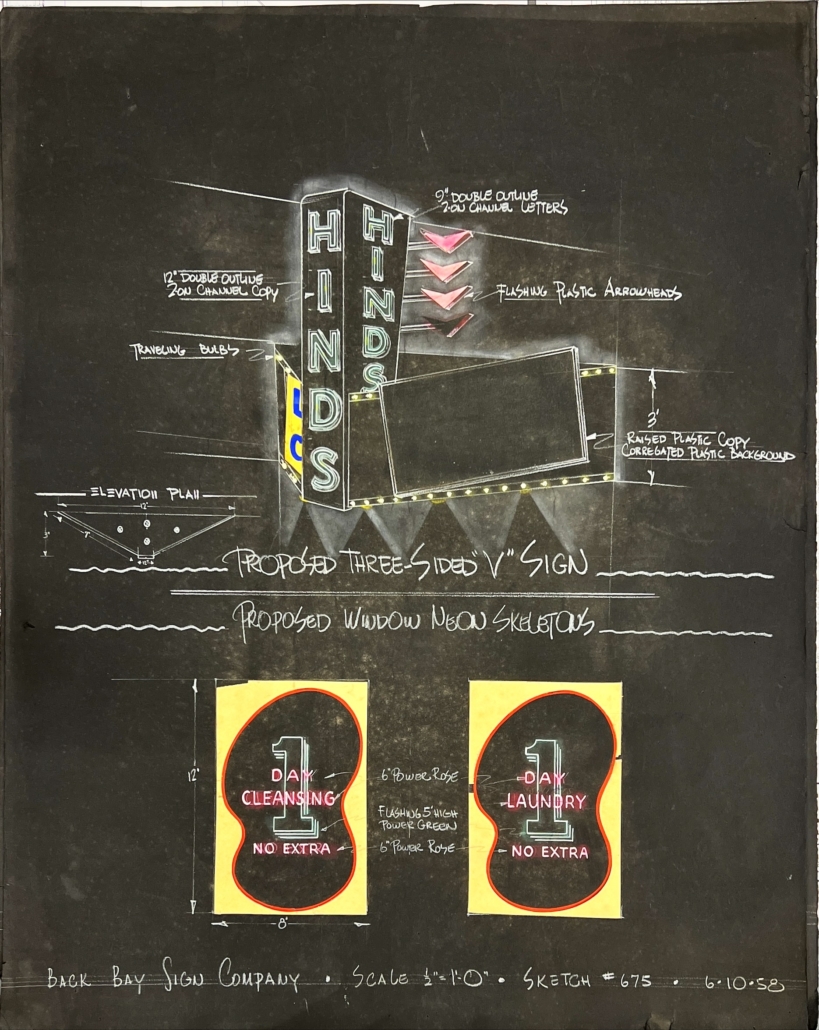 9" DOUBLE OUTLINE
2-ON CHANNEL LETTERS
HINDS
HINDS
12" DOUBLE OUTLINE
2 ON CHANNEL COPY
FLASHING PLASTIC ARROWHEADS
TRAVELING BULBS
L
C
3'
RAISED PLASTIC COPY
CORREGATED PLASTIC BACKGROUND
ELEVATION PLAN
12'
7'
PROPOSED THREE-SIDED "V" SIGN
PROPOSED WINDOW NEON SKELETONS
12'
1
DAY
CLEANSING
NO EXTRA
6" POWER ROSE
FLASHING 5' HIGH
POWER GREEN
6" POWER ROSE
1
DAY
LAUNDRY
NO EXTRA
8'
BACK BAY SIGN COMPANY • SCALE ½"=1'-0" • SKETCH #675 • 6·10·58